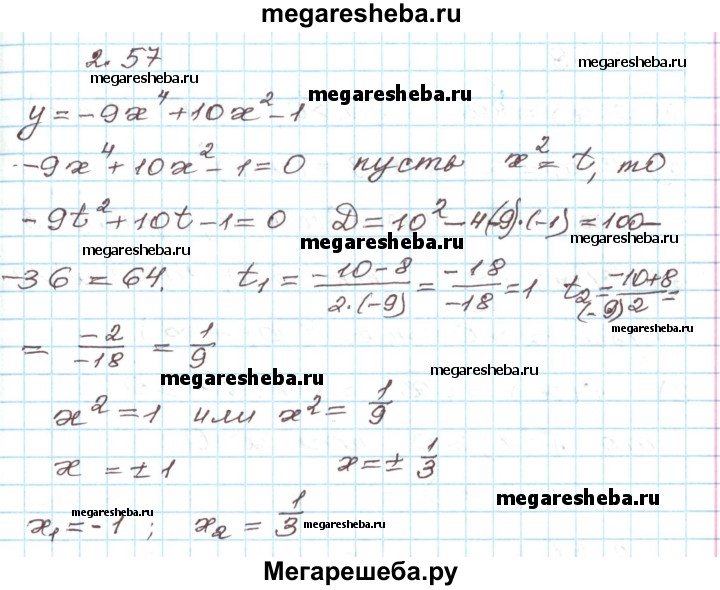 megaresheba.ru
2.57
megaresheba.ru
megaresheba.ru
y = -9x⁴ + 10x² - 1
megaresheba.ru
-9x⁴ + 10x² - 1 = 0 пусть x² = t, то
-9t² + 10t - 1 = 0 D = 10² - 4(-9)·(-1) = 100 -
megaresheba.ru
megaresheba.ru
megaresheba.ru
-36 = 64. t₁ = (-10 - 8)/(2·(-9)) = -18/-18 = 1 t₂ = (-10 + 8)/((-9)2) =
megaresheba.ru
= -2/-18 = 1/9
megaresheba.ru
megaresheba.ru
x² = 1 или x² = 1/9
x = ± 1 x = ± 1/3
megaresheba.ru
megaresheba.ru
x₁ = -1 ; x₂ = 1/3
megaresheba.ru
Мегарешеба.ру